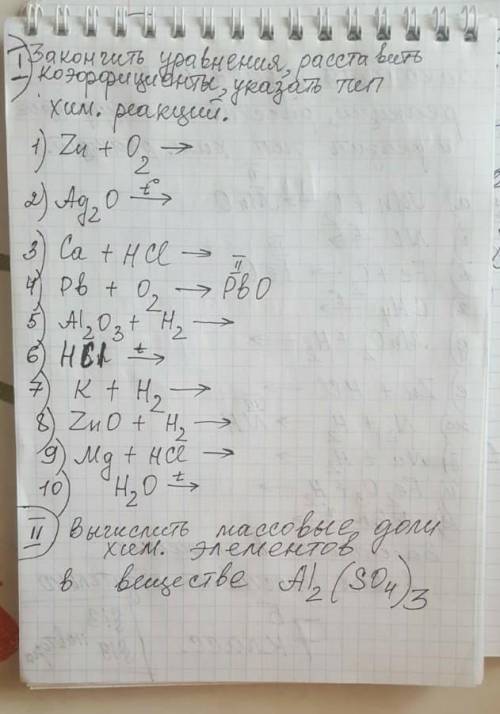 I Закончить уравнения, расставить
коэффициенты, указать тип
хим. реакций.
1) Zn + O₂ →
2) Ag₂O t° →
3) Ca + HCl →
4) Pb + O₂ → PbO II
5) Al₂O₃ + H₂ →
6) HCl t →
7) K + H₂ →
8) ZnO + H₂ →
9) Mg + HCl →
10) H₂O t →
II Вычислить массовые доли
хим. элементов
в веществе Al₂(SO₄)₃